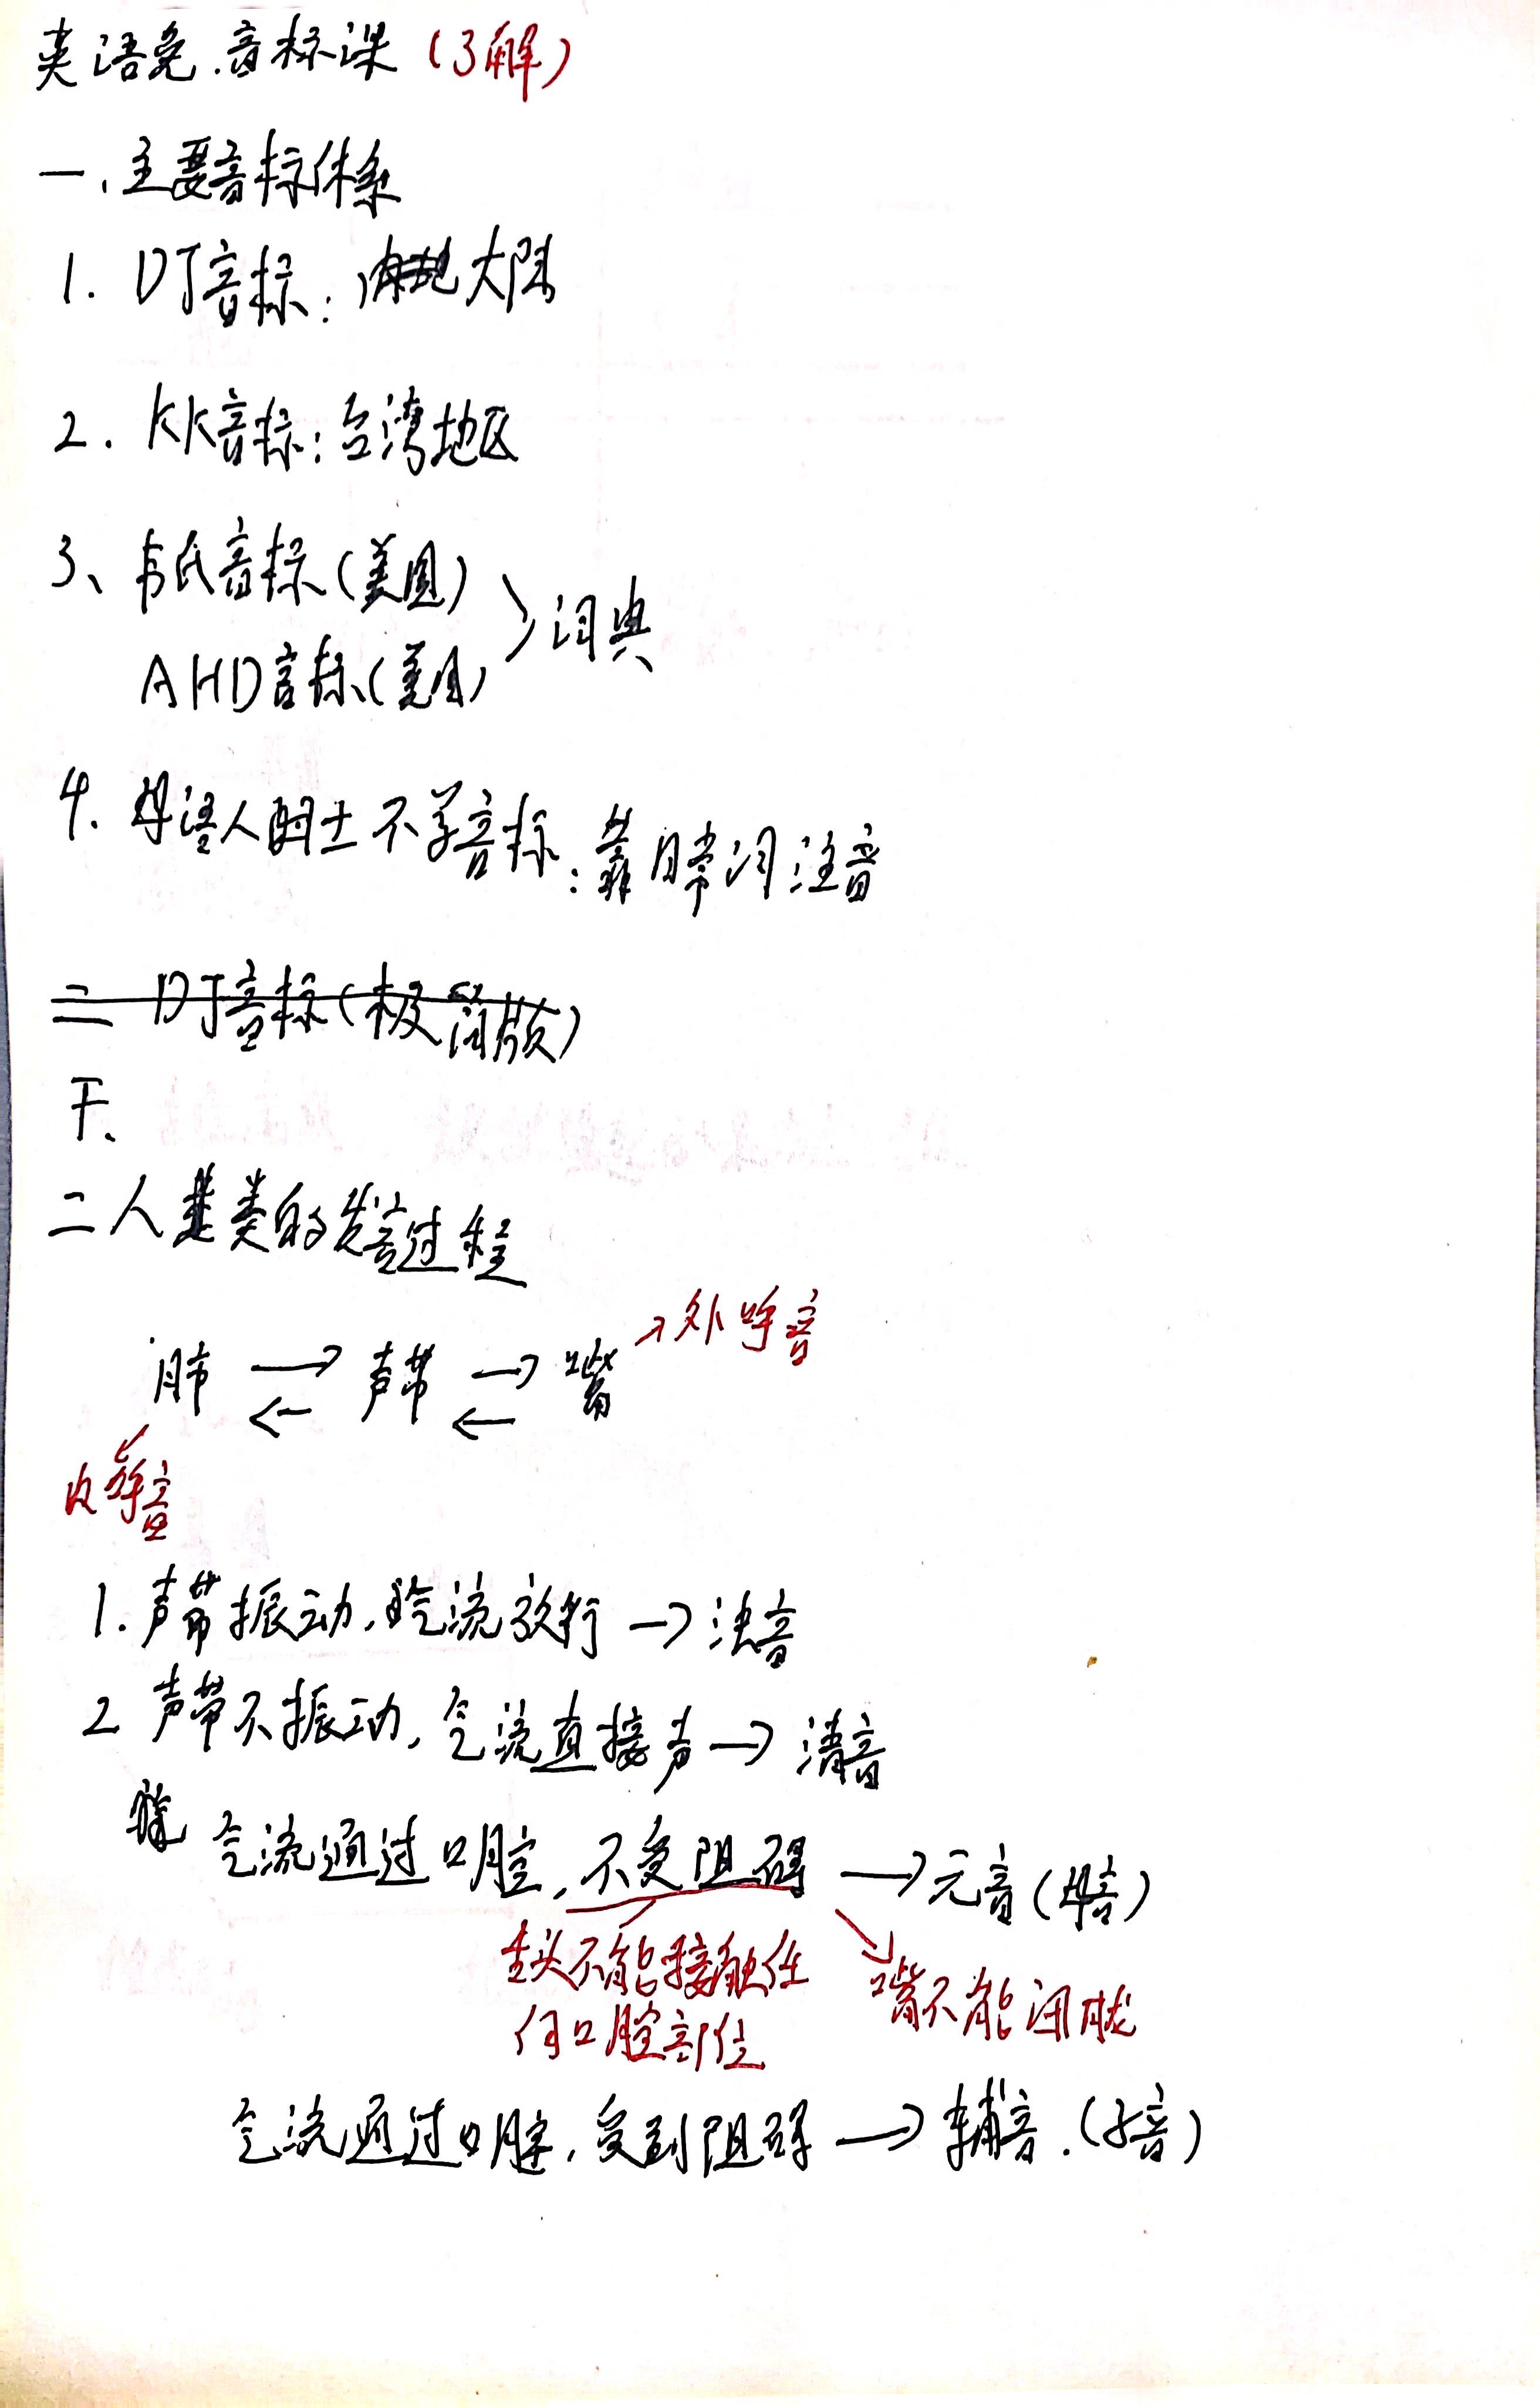 英语兔.音标课(了解)
一、主要音标体系
1. DJ音标: 大陆
2. KK音标:台湾地区
3、韦氏音标(美国)
AHD音标(美国)
>词典
4. 母语人士不学音标:靠常词注音
二 DJ音标(极简版)
下、
二人类的发音过程
→外呼音
肺 ⇄ 声带 ⇄ 嘴
音
1. 声带振动,气流放行→浊音
2 声带不振动,气流直接 → 清音
气流通过口腔,不受阻碍 → 元音(母音)
舌头不能接触任
何口腔部位
嘴不能闭拢
气流通过口腔,受到阻碍 → 辅音.(子音)